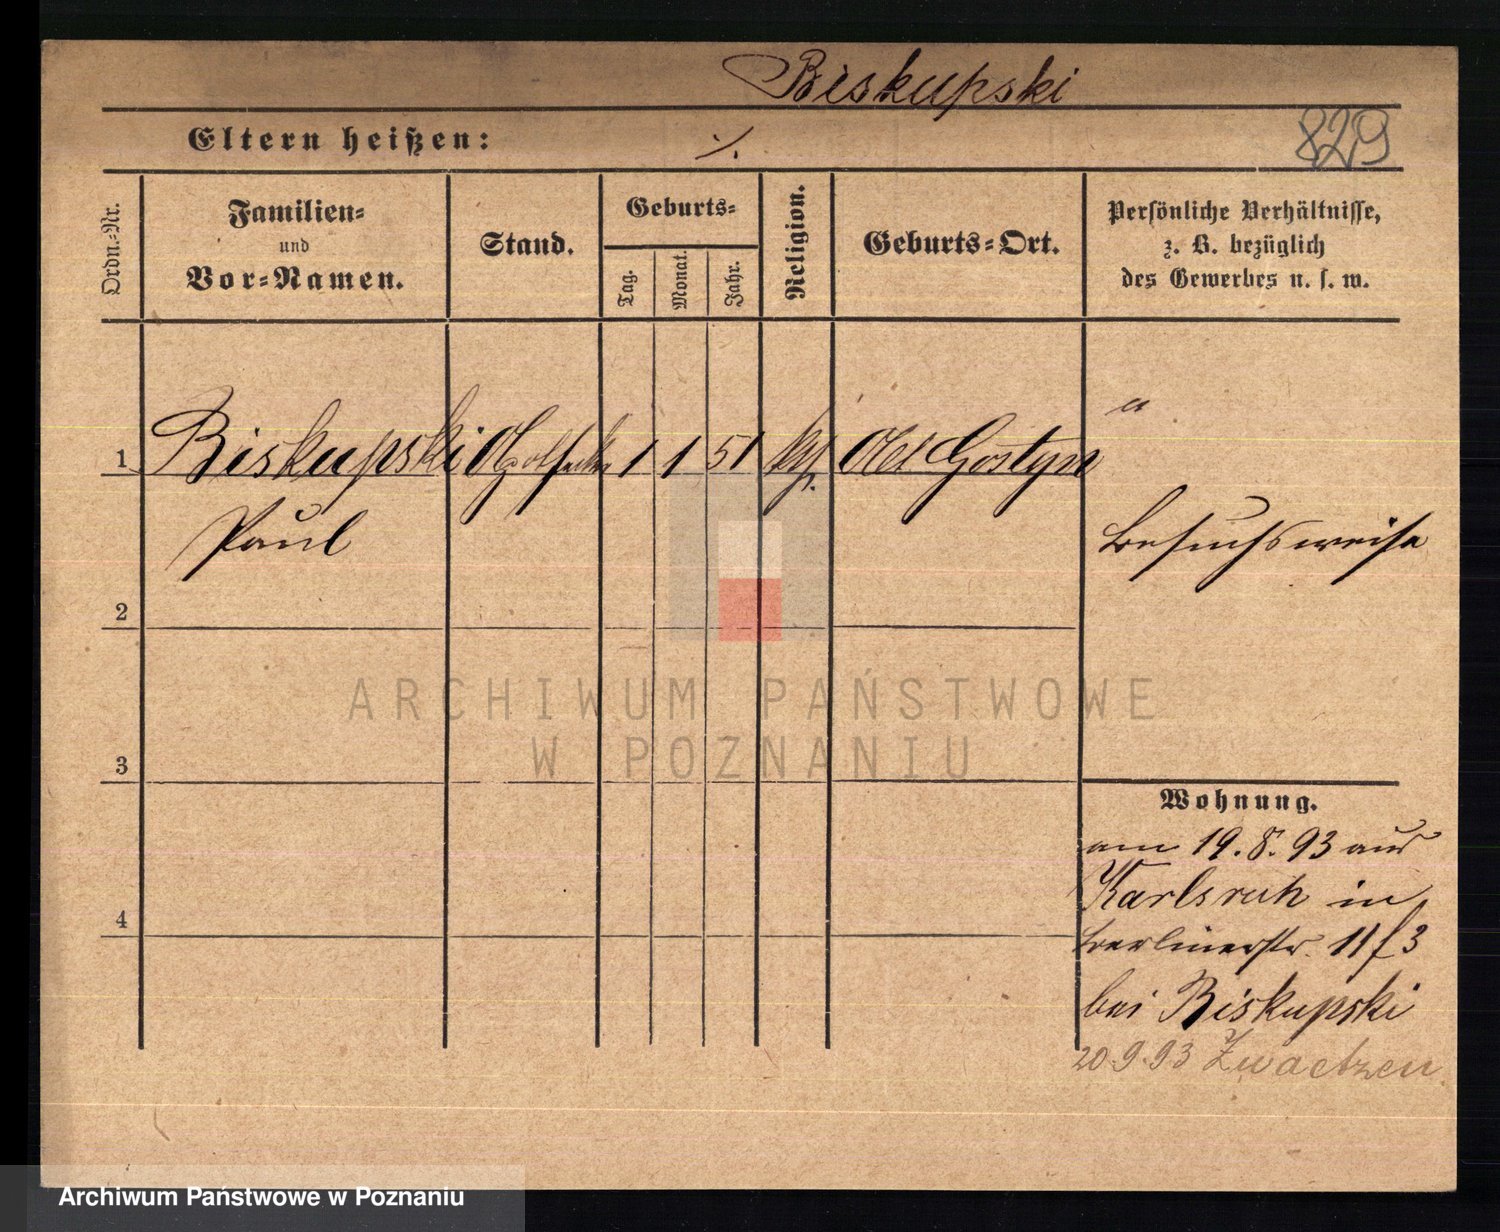 Biskupski
Eltern heißen: ./.
829
Ordn.-Nr.
Familien-
und
Vor-Namen.
Stand.
Geburts-
Tag.
Monat.
Jahr.
Religion.
Geburts-Ort.
Persönliche Verhältnisse,
z. B. bezüglich
des Gewerbes u. s. w.
1 Biskupski 1 1 51 Gostyn
Paul
besuchsweise
2
3
4
Wohnung.
am 19.8.93 aus
Karlsruh in
Berlinerstr. 11 f 3
bei Biskupski
20.9.93 Zwaetzen
ARCHIWUM PAŃSTWOWE
W POZNANIU
Archiwum Państwowe w Poznaniu